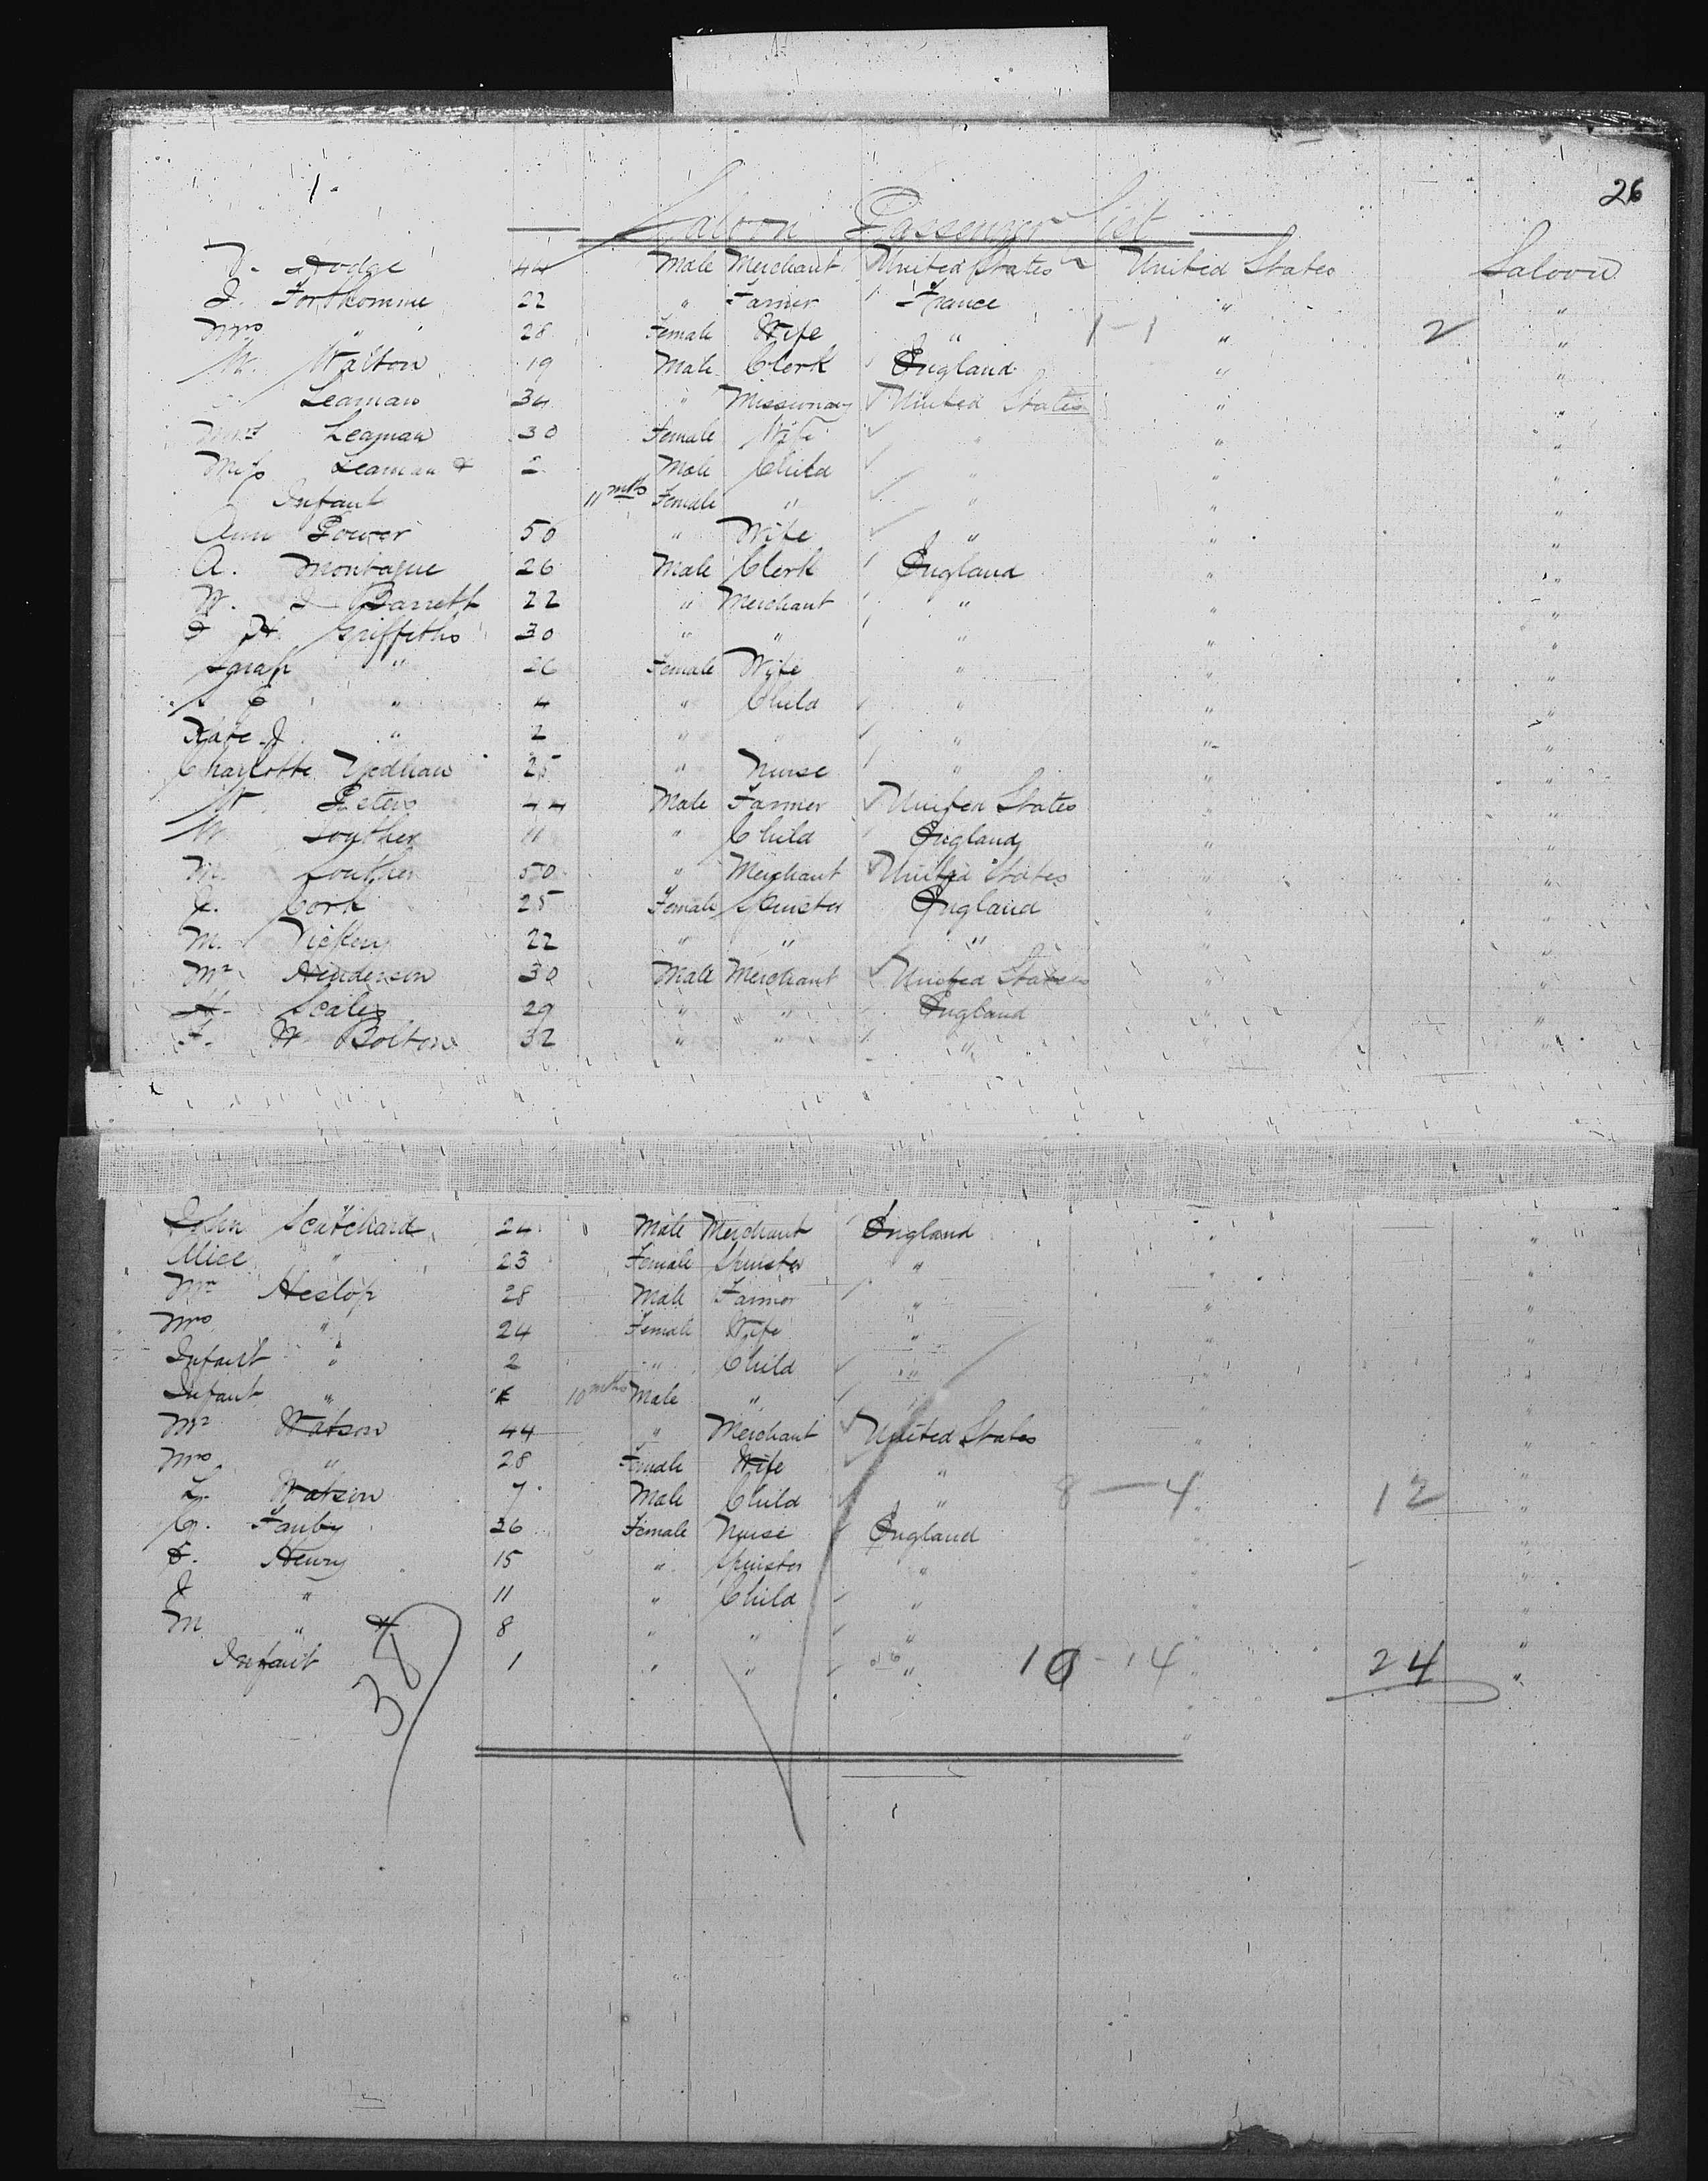 1.
26
Saloon Passenger List
Dodge 44 Male Merchant United States United States Saloon
J. Forthomme 22 " Farmer France " "
Mrs " 28 Female Wife " 1-1 " 2 "
W. Walton 19 Male Clerk England " "
Leaman 34 " Missionary United States " "
Mrs Leaman 30 Female Wife " " "
Miss Leaman & 2 Male Child " " "
Infant 11 mths Female " " " "
Ann Power 50 " Wife " " "
A. Montague 26 Male Clerk England " "
W. J Barrett 22 " Merchant " " "
J H. Griffiths 30 " " " " "
Sarah " 26 Female Wife " " "
S E " 4 " Child " " "
Kate J. " 2 " " " " "
Charlotte 25 " Nurse " " "
W. Peters 44 Male Farmer United States " "
W. Souther 11 " Child England " "
M. Souther 50 " Merchant United States " "
E. Cork 25 Female Spinster England " "
M. 22 " " " " "
Mr. Henderson 30 Male Merchant United States " "
H. Scales 29 " " England " "
F. W Bolton 32 " " " " "
John Scatchard 24 Male Merchant England " "
Alice " 23 Female Spinster " " "
Mr Heslop 28 Male Farmer " " "
Mrs " 24 Female Wife " " "
Infant " 2 " Child " " "
Infant " 10 mths Male " " " "
Mr Watson 44 " Merchant United States " "
Mrs " 28 Female Wife " " "
L. Watson 7 Male Child " 8-4 " 12 "
C. Fauby 26 Female Nurse England " "
Henry 15 " Spinster " " "
J " 11 " Child " " "
M " & 8 " " " " "
Infant 1 " " " 10-14 " 24 "
38